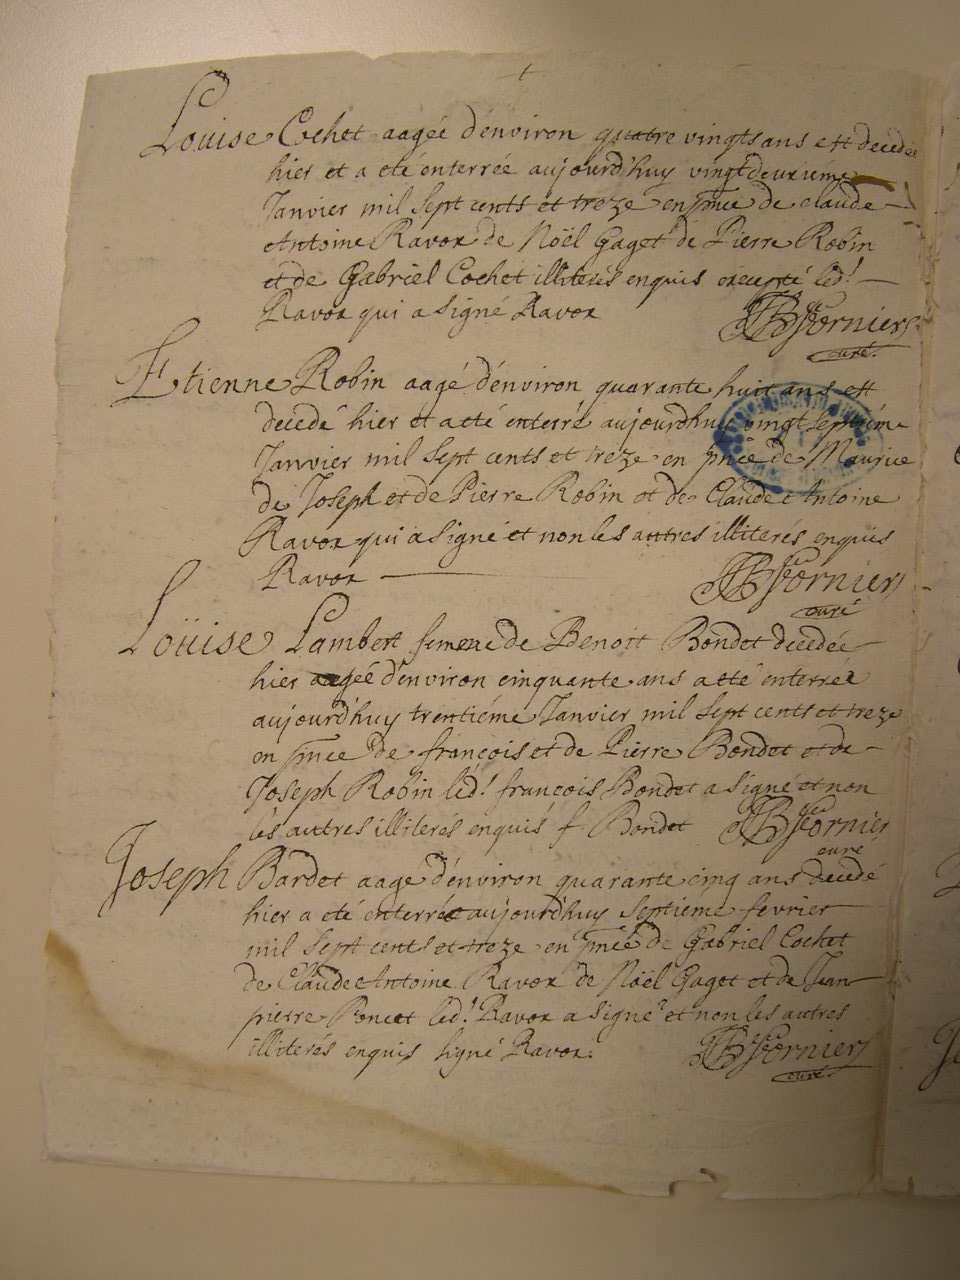 Loüise Cochet aagée d'énviron quatre vingts ans est decedée
hier et a eté enterrée aujourd'huy vingt deuxiéme
Janvier mil sept cents et treze en pnce de claude
Antoine Ravox de Noël Gaget de Pierre Robin
et de Gabriel Cochet illiterés enquis excepté led!
Ravox qui a signé Ravox
Fornier
curé.
Etienne Robin aagé d'énviron quarante huit ans est
decedé hier et a eté enterré aujourdhuy vingt septiéme
Janvier mil sept cents et treze en pnce de Maurice
de Joseph et de Pierre Robin et de Claude Antoine
Ravox qui a signé et non les autres illiterés enquis
Ravox
Fornier
curé
Loüise Lambert femme de Benoit Bondet decedée
hier aagée d'énviron cinquante ans a eté enterrée
aujourd'huy trentiéme Janvier mil sept cents et treze
en pnce de françois et de Pierre Bondet et de
Joseph Robin led! françois Bondet a signé et non
les autres illiterés enquis f Bondet
Fornier
curé
Joseph Bardet aagé d'énviron quarante cinq ans decedé
hier a eté enterré aujourd'huy septiéme fevrier
mil sept cents et treze en pnce de Gabriel Cochet
de Claude Antoine Ravox de Noël Gaget et de Jean
pierre Poncet led! Ravox a signé et non les autres
illiterés enquis signé Ravox.
Fornier
curé